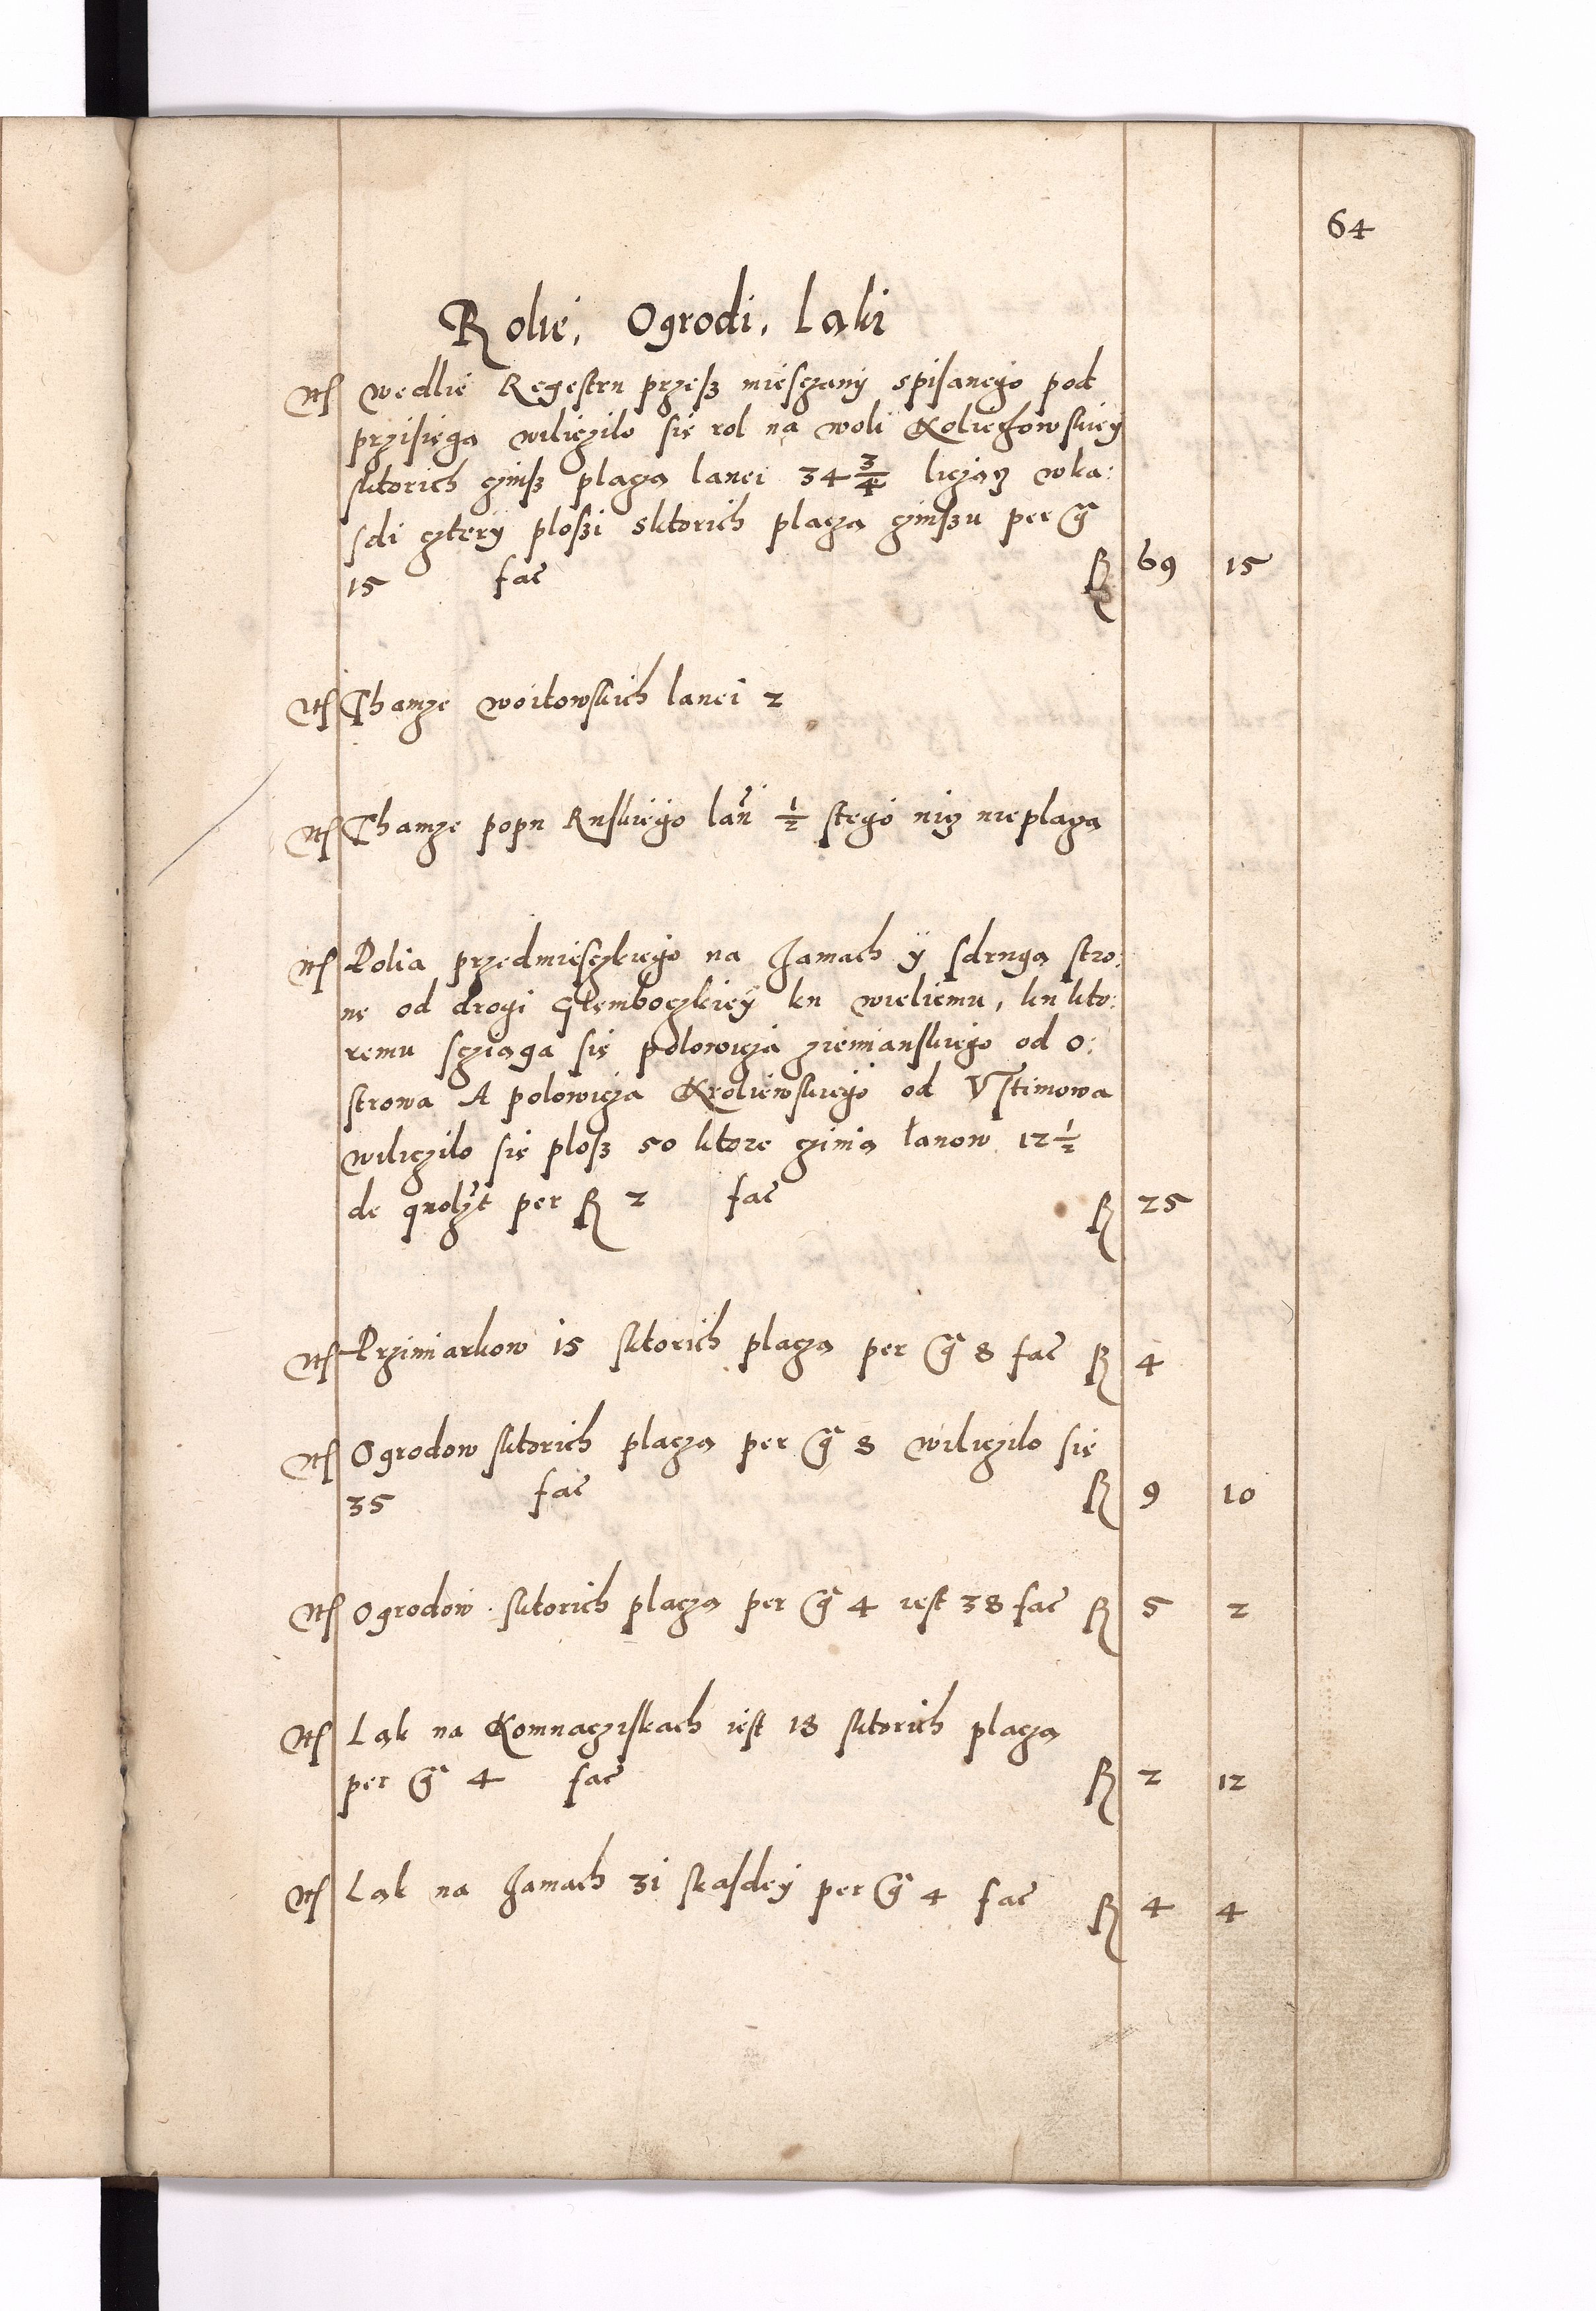 64
Rolie, Ogrodi, laki
Its wedlie Regestru przesz miesczany spisanego pod
przisięgą wiliczilo się rol na woli Koliechowskiey
sktorich czinsz placzą lanei 34 3/4 licząz wka:
sdi cztery plosi sktorich placza czinszu per gr
15 fac R 69 15
Its Thamze woitowskich lanei 2
Its Thamze popu Ruskiego lan 1/2 stego niz nieplaczą
Its Polia przedmiesczkiego na Jamach ÿ sdrugą stro:
nę od drogi Głemboczkieÿ ku wieliemu, ku kto:
remu scziąga się polowicza ziemianskiego od O:
strowa A polowicza Kroliewskiego od Ustimowa
wiliczilo się plosz 50 ktore czinią łanow 12 1/2
de quolzt per R 2 fac R 25
Its Prziniarkow 15 sktorich placzą per gr 8 fac R 4
Its Ogrodow sktorich placzą per gr 8 wiliczilo się
35 fac R 9 10
Its Ogrodow sktorich placzą per gr 4 iest 38 fac R 5 2
Its Ląk na Komnacziskach iest 18 sktorich placzą
per gr 4 fac R 2 12
Its Ląk na Jamach 31 skasdey per gr 4 fac R 4 4